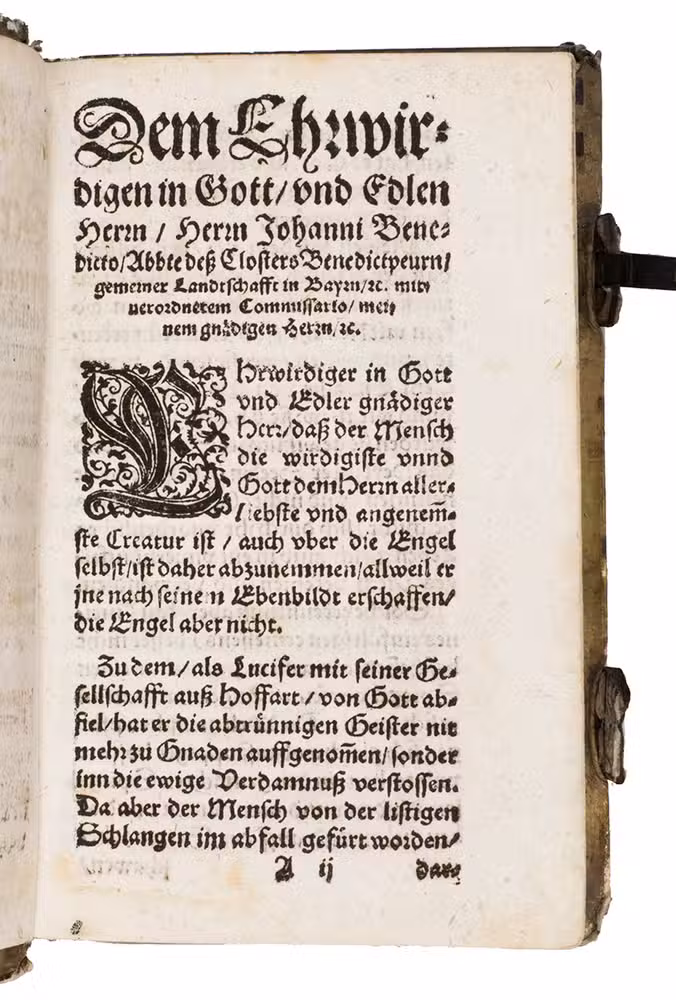 Dem Ehrwir⸗
digen in Gott/ vnd Edlen
Herrn / Herrn Johanni Bene⸗
dicto/Abbte deß Closters Benedictpeurn/
gemeiner Landtschafft in Bayrn/ꝛc. mit⸗
uerordnetem Commissario/ mei⸗
nem gnådigen Herrn/ꝛc.
EHrwirdiger in Gott
vnd Edler gnådiger
Herr/daß der Mensch
die wirdigiste vnnd
Gott dem Herrn aller⸗
liebste vnd angenem̃⸗
ste Creatur ist / auch vber die Engel
selbst/ist daher abzunemmen/allweil er
jne nach seinem Ebenbildt erschaffen/
die Engel aber nicht.
Zu dem/ als Lucifer mit seiner Ge⸗
sellschafft auß Hoffart / von Gott ab⸗
fiel/hat er die abtrünnigen Geister nit
mehr zu Gnaden auffgenom̃en/sonder
inn die ewige Verdamnuß verstossen.
Da aber der Mensch von der listigen
Schlangen im abfall gefürt worden/
A ij dar⸗